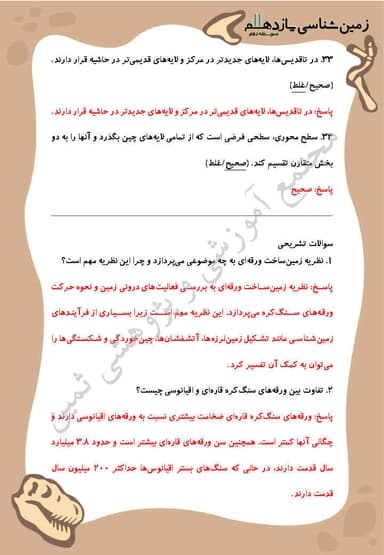 زمین شناسی یازدهم
متوسطه دوم
۳۳. در تاقدیس‌ها، لایه‌های جدیدتر در مرکز و لایه‌های قدیمی‌تر در حاشیه قرار دارند.
(صحیح/غلط)
پاسخ: در تاقدیس‌ها، لایه‌های قدیمی‌تر در مرکز و لایه‌های جدیدتر در حاشیه قرار دارند.
۳۴. سطح محوری، سطحی فرضی است که از تمامی لایه‌های چین بگذرد و آنها را به دو
بخش متقارن تقسیم کند. (صحیح/غلط)
پاسخ: صحیح
سوالات تشریحی
۱. نظریه زمین‌ساخت ورقه‌ای به چه موضوعی می‌پردازد و چرا این نظریه مهم است؟
پاسخ: نظریه زمین‌ساخت ورقه‌ای به بررسی فعالیت‌های درونی زمین و نحوه حرکت
ورقه‌های سنگ‌کره می‌پردازد. این نظریه مهم است زیرا بسیاری از فرآیندهای
زمین‌شناسی مانند تشکیل زمین‌لرزه‌ها، آتشفشان‌ها، چین‌خوردگی و شکستگی‌ها را
می‌توان به کمک آن تفسیر کرد.
۲. تفاوت بین ورقه‌های سنگ‌کره قاره‌ای و اقیانوسی چیست؟
پاسخ: ورقه‌های سنگ‌کره قاره‌ای ضخامت بیشتری نسبت به ورقه‌های اقیانوسی دارند و
چگالی آنها کمتر است. همچنین سن ورقه‌های قاره‌ای بیشتر است و حدود ۳.۸ میلیارد
سال قدمت دارند، در حالی که سنگ‌های بستر اقیانوس‌ها حداکثر ۲۰۰ میلیون سال
قدمت دارند.
مجتمع آموزشی و پژوهشی ثمین